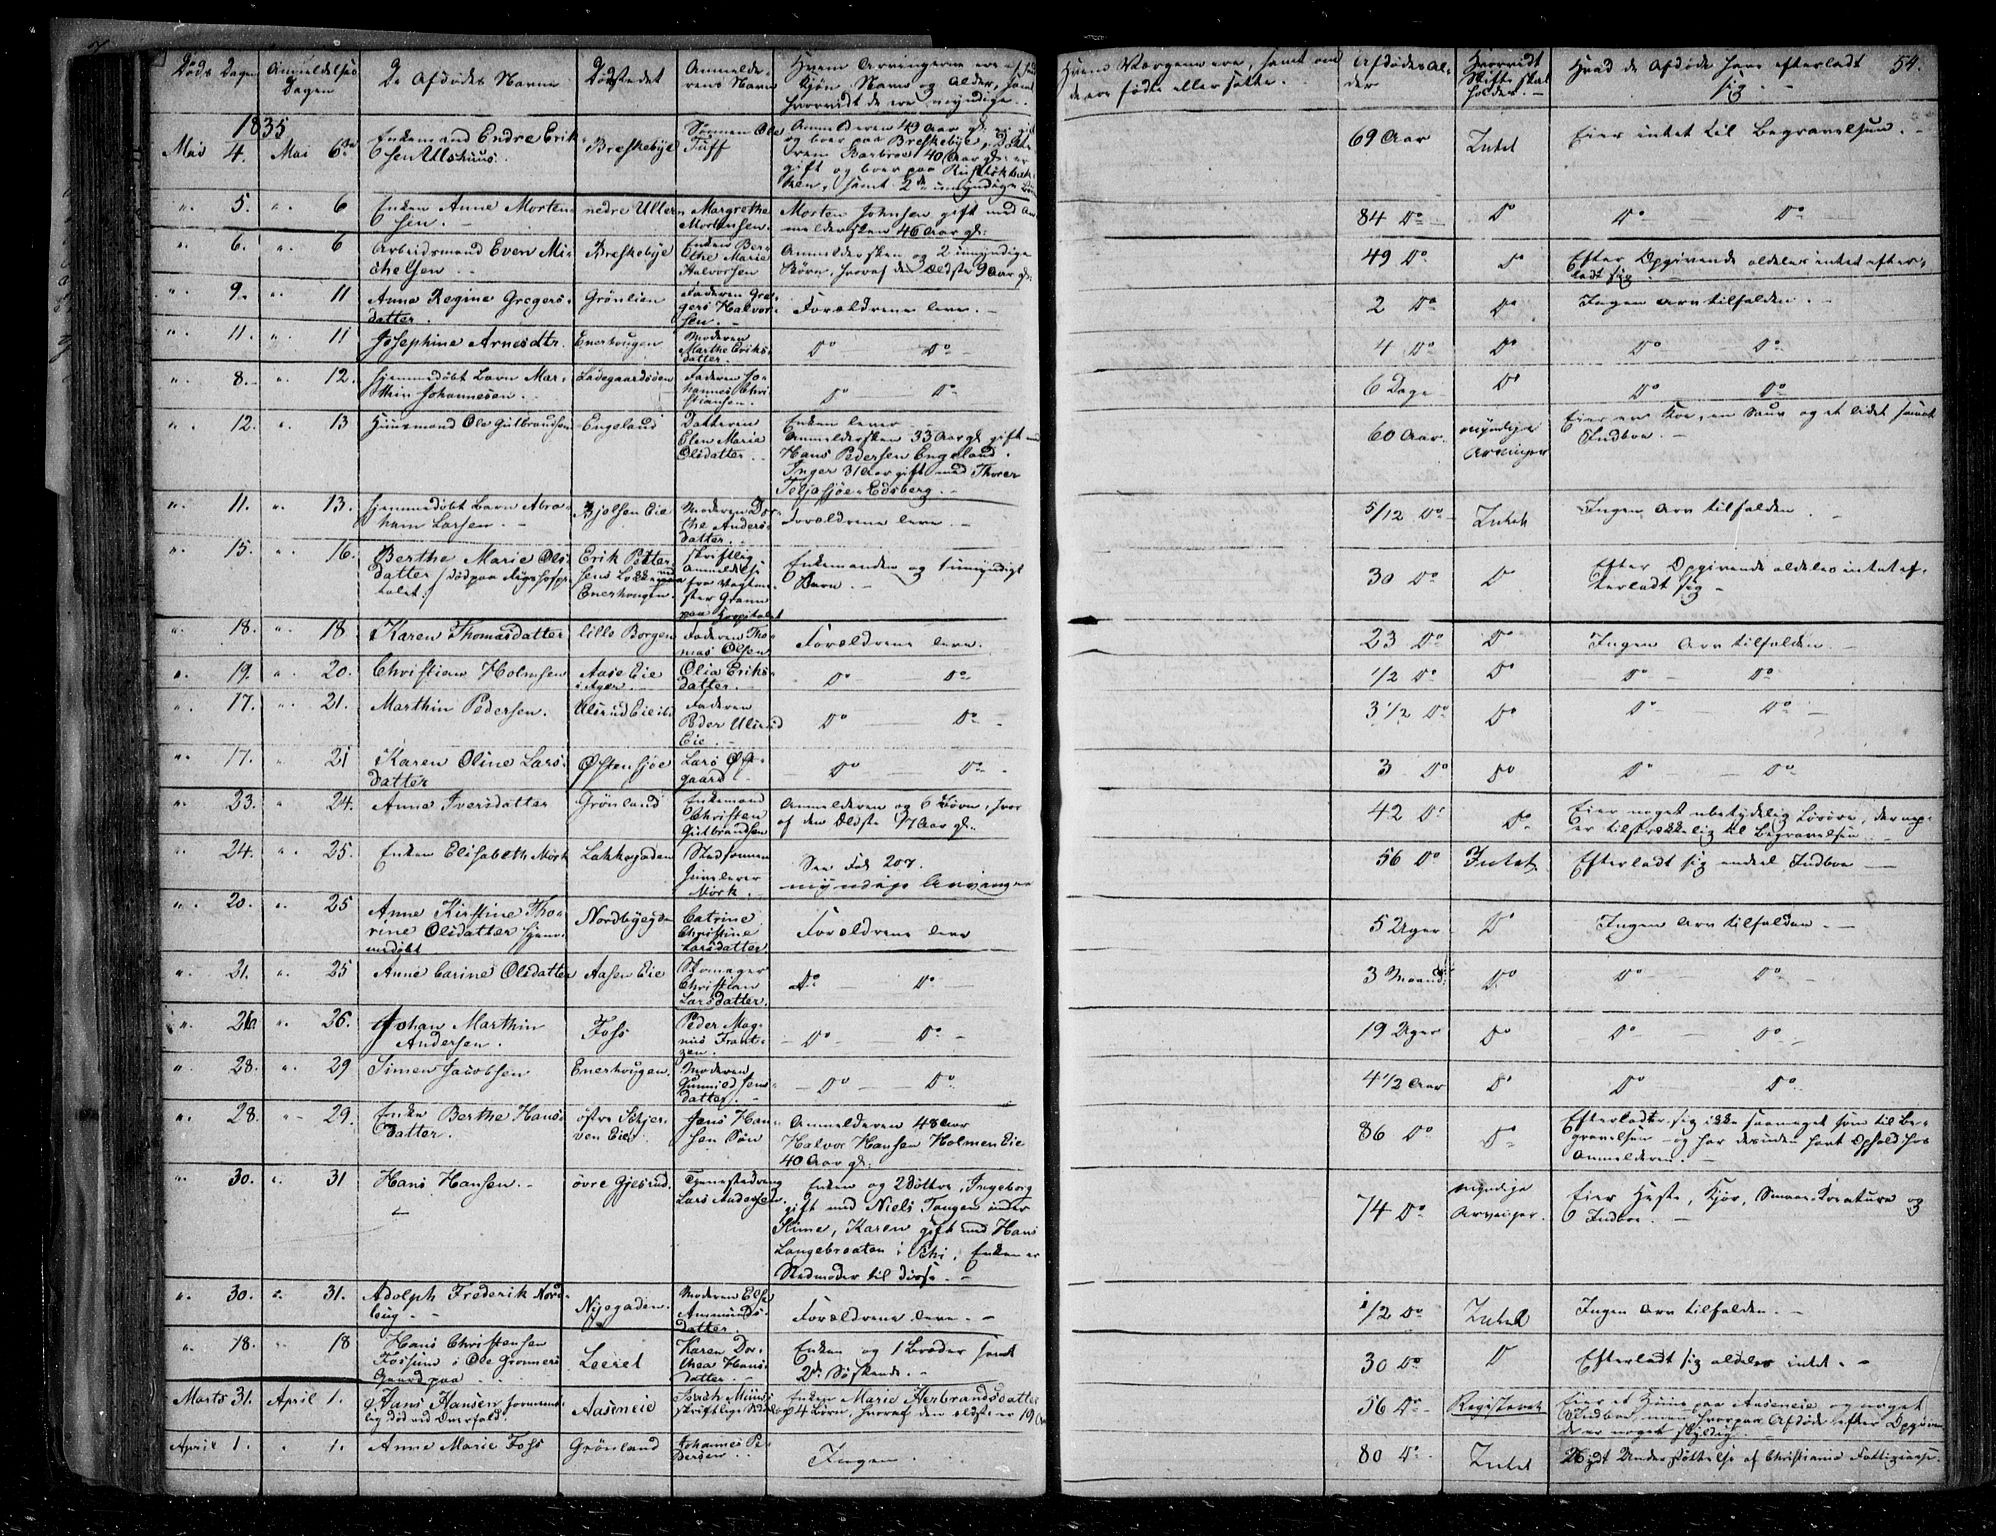 Døds Dagen
Anmeldelses Dagen
De Afdødes Navne
Dødstedet
Anmelderens Navn
Hvem Arvingerne ere
Kjøn Navne og Alder, samt
hvorvidt de ere myndige.
Hvem Værgerne ere, samt om
de ere fødte eller satte.
Afdødes Alder
Hvorvidt Skifte skal holdes.
Hvad de Afdøde have efterladt sig.
54.
1835
Mai 4. Mai 6te Enkemand Endre Eriksen Ullshuus. Breskebye Sønnen Ole Tuff
Anmelderen 43 Aar gl. og boer paa Breskebye, Barbroe 40 Aar gl: er gift og boer paa samt 2de umyndige
69 Aar Intet Eier intet til Begravelsen.
" 5. " 6 Enken Anne Mortensen. nedre Ullern Margrethe Mortensen. Morten Johnsen gift med Anmeldersken 46 Aar gl: 84 Do Do Do Do
" 6. " 6 Arbeidsmand Even Michelsen Breskebye Enken Berthe Marie Halvorsen Anmeldersken og 2 umyndige Børn, hvoraf den ældste 9 Aar gl: 49 Do Do Efter Opgivende aldeles intet efterladt sig
" 9. " 11 Anna Regine Gregersdatter. Grönlien Faderen Gregers Halvorsen. Forældrene leve. 2 Do Do Ingen Arv tilfalden.
" 11. " 11 Josephine Arnesdtr. Enerhougen Moderen Marthe Eriksdatter. Do Do 4 Do Do Do Do
" 8. " 12. hjemmedøbt Barn Marthin Johannesen. Ladegaardsøen Faderen Johannes Christiansen. Do Do 6 Dage Do Do Do
" 12. " 13 Huusmand Ole Gulbrandsen Engeland Datteren Elen Maria Olsdatter. Enken lever
Anmeldersken 33 Aar gl. gift med
Hans Pedersen Engeland.
Inger 31 Aar gift med Thorer
60 Aar. myndige Arvinger Eier en Koe, en Sau og et lidet samt Indboe.
" 11. " 13. hjemmedøbt Barn Abraham Larsen. Bjølsen Eie Moderen Dorthe Andersdatter. Forældrene leve. 5/12 Do Intet Ingen Arv tilfalden.
" 15. " 16. Berthe Marie Olsdatter /død paa Rigshospitalet/ Erik Pettersens Løkke Enerhougen. Skriftlig Anmeldelse fra Vagtmester Gram paa Hospitalet Enkemanden og 1 umyndigt Barn. 30 Do Do Efter Opgivende aldeles intet efterladt sig
" 18. " 18 Karen Thomasdatter lille Borgen Faderen Thomas Olsen Forældrene leve. 23 Do Do Ingen Arv tilfalden
" 19. " 20. Christian Holmsen Aase Eie i Ager. Olia Eriksdatter. Do Do 1/2 Do Do Do Do
" 17. " 21. Marthin Pedersen. Ulsrud Eie Faderen Peder Ulsrud Eie. Do Do 3 1/2 Do Do Do Do
" 17. " 21 Karen Oline Larsdatter Østensjøe Lars Østgaard Do Do 3 Do Do Do Do
" 23. " 24. Anna Iversdatter Grönland Enkemand Christen Gulbrandsen Anmelderen og 6 Børn, hvoraf den Ældste 17 Aar gl. 42 Do Do Eier noget ubetydelig Løsøre, der neppe er tilstrækkelig til Begravelsen
" 24. " 25. Enken Elisabeth Mørk Lakkegaden Stedsønnen Mørk. See Fol 207. myndige Arvinger 56 Do Intet. Efterladt sig endeel Indboe
" 20. " 25 Anne Kirstine Thorine Olsdatter hjemmedøbt Nordbygden Catrine Christine Larsdatter Forældrene leve 5 Uger Do Ingen Arv tilfalden.
" 21. " 25 Anne Carine Olsdatter Aasen Eie Skomager Christian Larsdatter. Do Do 3 Maand: Do Do Do
" 26 " 26. Johan Marthin Andersen. Foss Peder Magnus Frantzen. Do Do 19 Uger Do Do Do
" 28. " 29 Simen Jacobsen Enerhougen. Moderen Gunnild Jensdatter. Do Do 4 1/2 Aar Do Do Do
" 28. " 29. Enke Berthe Hansdatter. østre Skjerven Eie. Jens Hansen Søn Anmelderen 48 Aar
Halvor Hansen Holmen Eie
40 Aar gl: 86 Do Do Efterlader sig ikke saameget som til Begravelsen og har desuden havt Ophold hos Anmelderen.
" 30. " 31 Hans Hansen. øvre Gjesrud. Tjenestedreng Lars Andersen. Enken og 2 Døttre, Ingeborg
gift med Niels Tangen under
Karen gift med Hans
Langebraaten i Enken er
Stedmoder til disse.
74 Do myndige Arvinger. Eier Heste, Kjør, Smaae-Kreature og Indboe.
" 30. " 31. Adolph Frederik Nyegaden. Moderen Else Amundsdatter Forældrene leve. 1/2 Do Intet Ingen Arv tilfalden.
" 18. " 18 Hans Christensen Fossum i Ole Grønners Gaard paa Leeret Karen Dorthea Hansdatter. Enken og 1 Broder samt 2de Søskende. 30 Do Do Efterladt sig aldeles intet.
Marts 31. April 1. Hans Hansen Aaseneie Skriftlige Enken Marie Herbrandsdatter og 4 Børn, hvoraf den ældste er 19 Aar 56 Do Registeret Eier et Huus paa Aaseneie og noget Indboe, men hvorpaa Afdøde efter Opgivende er noget skyldig
April 1. " 1. Anne Marie Foss Grönland Johannes Pedersen Ingen. 80 Do Intet Understøttelse af Christiania Fattigcasse.